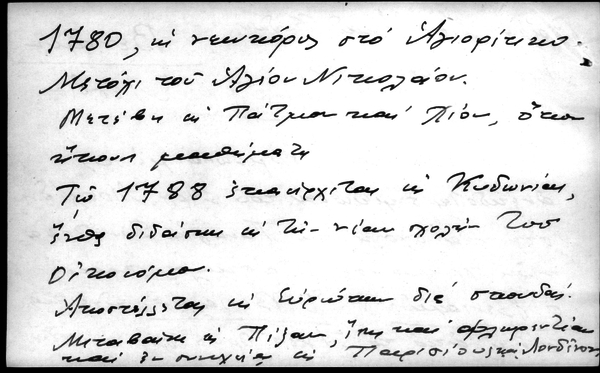 1780, εἰς νεωκόρος στό Ἁγιορίτικο
Μετόχι τοῦ Ἁγίου Νικολάου.
Μετέβη εἰς Πάτμον καί Χίον, ὅπου
ἤκουσε μαθήματα
Τῷ 1788 ἐπανέρχεται εἰς Κυδωνίας,
διδάσκει εἰς τήν νέαν σχολήν τοῦ
Οἰκονόμου.
Ἀποστέλλεται εἰς Εὐρώπην διά σπουδάς.
Μεταβαίνει εἰς Πίζαν, καί Φλωρεντίαν
καί ἐν συνεχείᾳ εἰς Παρισίους καί Λονδῖνον